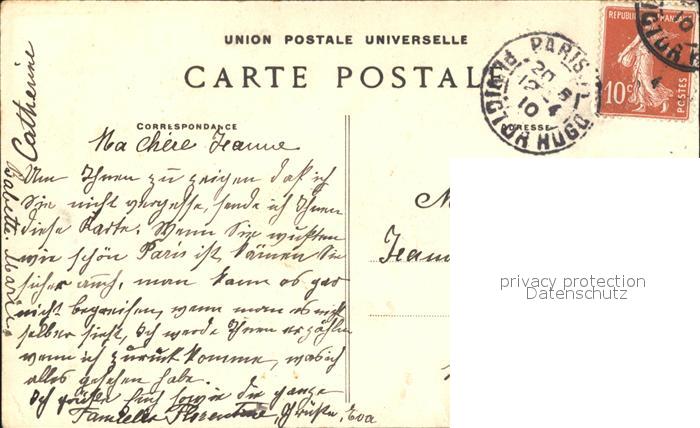 UNION POSTALE UNIVERSELLE
CARTE POSTALE
CORRESPONDANCE
ADRESSE
Ma chère Jeanne
Um Ihnen zu zeigen daß ich
Sie nicht vergesse, sende ich Ihnen
diese Karte. Wenn Sie wußten
wie schön Paris ist, kämen Sie
sicher auch, man kann es gar
nicht begreifen, wenn man es nicht
selber sieht, Ich werde Ihnen erzählen
wenn ich zurück komme, was ich
alles gesehen habe.
Ich grüße Sie sowie die ganze
Familie Florentine, Grüße, Eva
Catherine
Babette. Marie
M
Jean
PARIS
20
12
10
R. HUGO
REPUBLIQUE FRANCAISE
10c
POSTES
privacy protection
Datenschutz